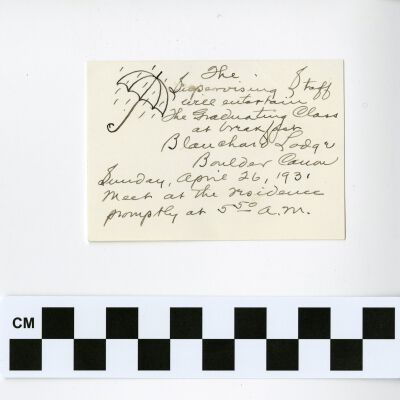 The
Supervising Staff
will entertain
The Graduating Class
at breakfast
Blanchard Lodge
Boulder Canon
Sunday, April 26, 1931
Meet at the residence
promptly at 5 50 A.M.
CM